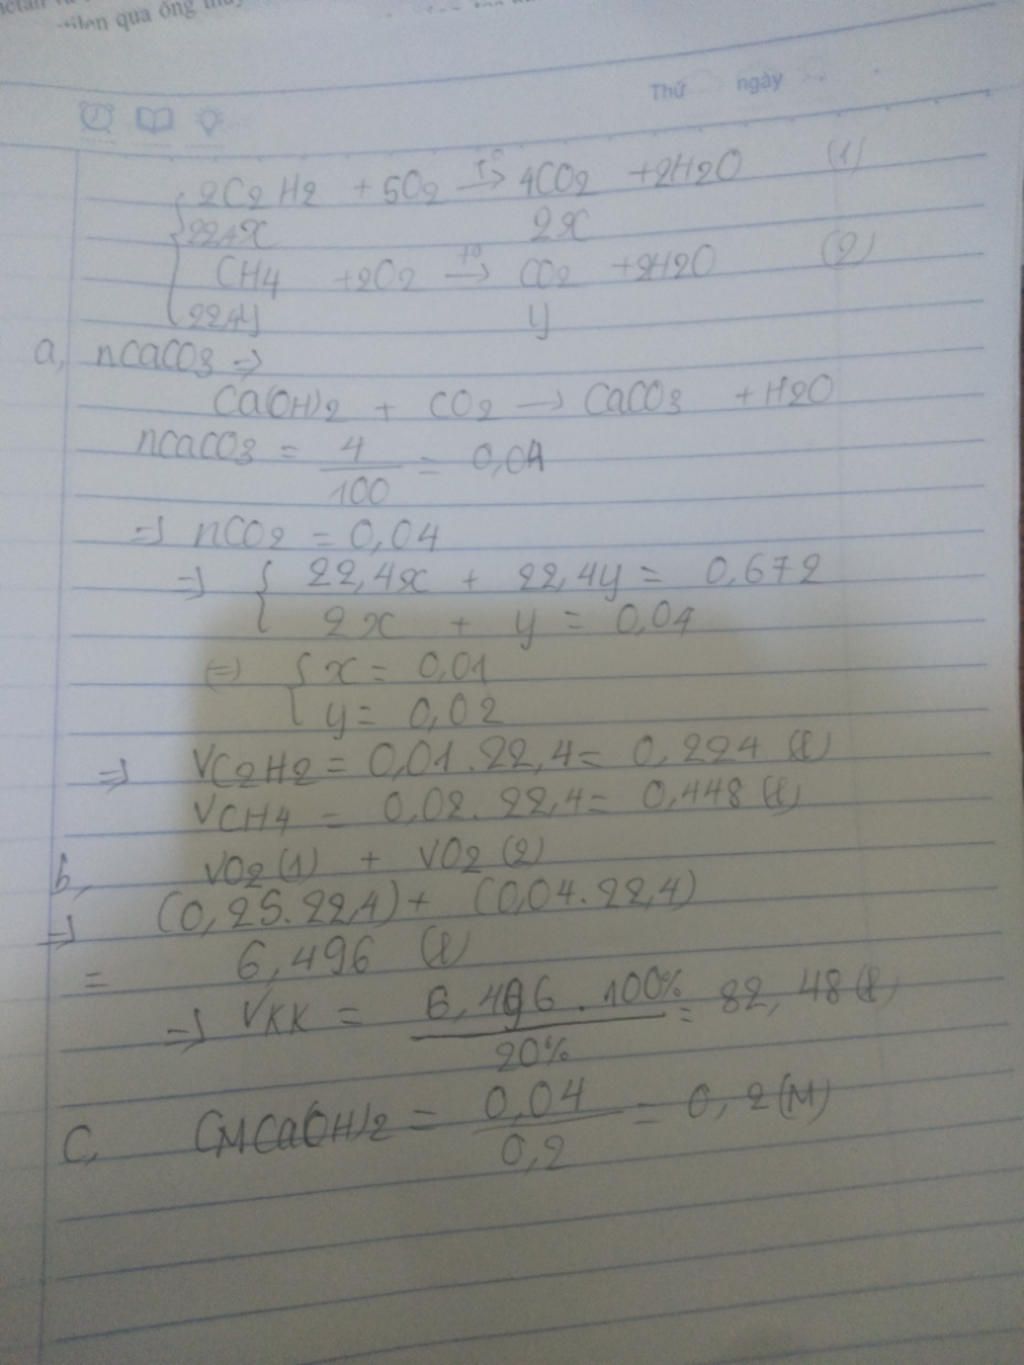 qua ống
Thứ ngày
2C2H2 + 5O2 t° → 4CO2 + 2H2O (1)
22,4x 2x
CH4 + 2O2 t° → CO2 + 2H2O (2)
22,4y y
a, nCaCO3 ⇒
Ca(OH)2 + CO2 → CaCO3 + H2O
nCaCO3 = 4/100 = 0,04
⇒ nCO2 = 0,04
⇒ { 22,4x + 22,4y = 0,672
2x + y = 0,04
⇔ { x = 0,01
y = 0,02
⇒ VC2H2 = 0,01.22,4 = 0,224 (l)
VCH4 = 0,02.22,4 = 0,448 (l)
b, VO2(1) + VO2(2)
⇒ (0,25.22,4) + (0,04.22,4)
= 6,496 (l)
⇒ VKK = 6,496.100%/20% = 32,48 (l)
c, CMCa(OH)2 = 0,04/0,2 = 0,2(M)